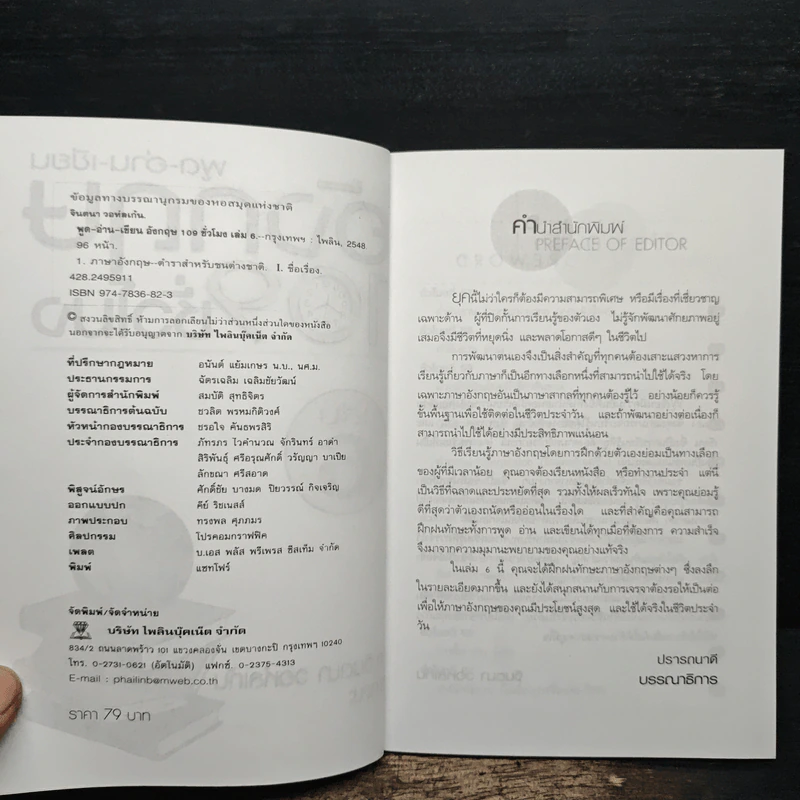 ข้อมูลทางบรรณานุกรมของหอสมุดแห่งชาติ
จินตนา วอทัลเก้น.
พูด-อ่าน-เขียน อังกฤษ 109 ชั่วโมง เล่ม 6.--กรุงเทพฯ : ไพลิน, 2548.
96 หน้า.
1. ภาษาอังกฤษ--ตำราสำหรับชนต่างชาติ. I. ชื่อเรื่อง.
428.2495911
ISBN 974-7836-82-3
© สงวนลิขสิทธิ์ ห้ามการลอกเลียนไม่ว่าส่วนหนึ่งส่วนใดของหนังสือ
นอกจากจะได้รับอนุญาตจาก บริษัท ไพลินบุ๊คเน็ต จำกัด
ที่ปรึกษากฎหมาย อนันต์ แย้มเกษร น.บ., นศ.ม.
ประธานกรรมการ ฉัตรเฉลิม เฉลิมชัยวัฒน์
ผู้จัดการสำนักพิมพ์ สมบัติ สุทธิจิตร
บรรณาธิการต้นฉบับ ชวลิต พรหมกิติวงค์
หัวหน้ากองบรรณาธิการ ชรอใจ คันธพรสิริ
ประจำกองบรรณาธิการ ภัทรภร ไวคำนวณ จักรินทร์ อาดำ
สิริพันธุ์ ศรีอรุณศักดิ์ วรัญญา บาเปีย
ลักขณา ศรีสอาด
พิสูจน์อักษร ศักดิ์ชัย บางมด ปิยวรรณ์ กิจเจริญ
ออกแบบปก คีย์ ริชเนสส์
ภาพประกอบ ทรงพล ศุภภมร
ศิลปกรรม โปรคอมกราฟฟิค
เพลต บ.เอส พลัส พรีเพรส ซิสเท็ม จำกัด
พิมพ์ แซทโฟร์
จัดพิมพ์/จัดจำหน่าย
บริษัท ไพลินบุ๊คเน็ต จำกัด
834/2 ถนนลาดพร้าว 101 แขวงคลองจั่น เขตบางกะปิ กรุงเทพฯ 10240
โทร. 0-2731-0621 (อัตโนมัติ) แฟกซ์. 0-2375-4313
E-mail : phailinb@mweb.co.th
ราคา 79 บาท
คำนำสำนักพิมพ์
PREFACE OF EDITOR
ยุคนี้ไม่ว่าใครก็ต้องมีความสามารถพิเศษ หรือมีเรื่องที่เชี่ยวชาญ
เฉพาะด้าน ผู้ที่ปิดกั้นการเรียนรู้ของตัวเอง ไม่รู้จักพัฒนาศักยภาพอยู่
เสมอจึงมีชีวิตที่หยุดนิ่ง และพลาดโอกาสดีๆ ในชีวิตไป
การพัฒนาตนเองจึงเป็นสิ่งสำคัญที่ทุกคนต้องเสาะแสวงหาการ
เรียนรู้เกี่ยวกับภาษาก็เป็นอีกทางเลือกหนึ่งที่สามารถนำไปใช้ได้จริง โดย
เฉพาะภาษาอังกฤษอันเป็นภาษาสากลที่ทุกคนต้องรู้ไว้ อย่างน้อยก็ควรรู้
ขั้นพื้นฐานเพื่อใช้ติดต่อในชีวิตประจำวัน และถ้าพัฒนาอย่างต่อเนื่องก็
สามารถนำไปใช้ได้อย่างมีประสิทธิภาพแน่นอน
วิธีเรียนรู้ภาษาอังกฤษโดยการฝึกด้วยตัวเองย่อมเป็นทางเลือก
ของผู้ที่มีเวลาน้อย คุณอาจต้องเรียนหนังสือ หรือทำงานประจำ แต่นี่
เป็นวิธีที่ฉลาดและประหยัดที่สุด รวมทั้งให้ผลเร็วทันใจ เพราะคุณย่อมรู้
ดีที่สุดว่าตัวเองถนัดหรืออ่อนในเรื่องใด และที่สำคัญคือคุณสามารถ
ฝึกฝนทักษะทั้งการพูด อ่าน และเขียนได้ทุกเมื่อที่ต้องการ ความสำเร็จ
จึงมาจากความมุมานะพยายามของคุณอย่างแท้จริง
ในเล่ม 6 นี้ คุณจะได้ฝึกฝนทักษะภาษาอังกฤษต่างๆ ซึ่งลงลึก
ในรายละเอียดมากขึ้น และยังได้สนุกสนานกับการเจรจาต้องรอให้เป็นต่อ
เพื่อให้ภาษาอังกฤษของคุณมีประโยชน์สูงสุด และใช้ได้จริงในชีวิตประจำ
วัน
ปรารถนาดี
บรรณาธิการ